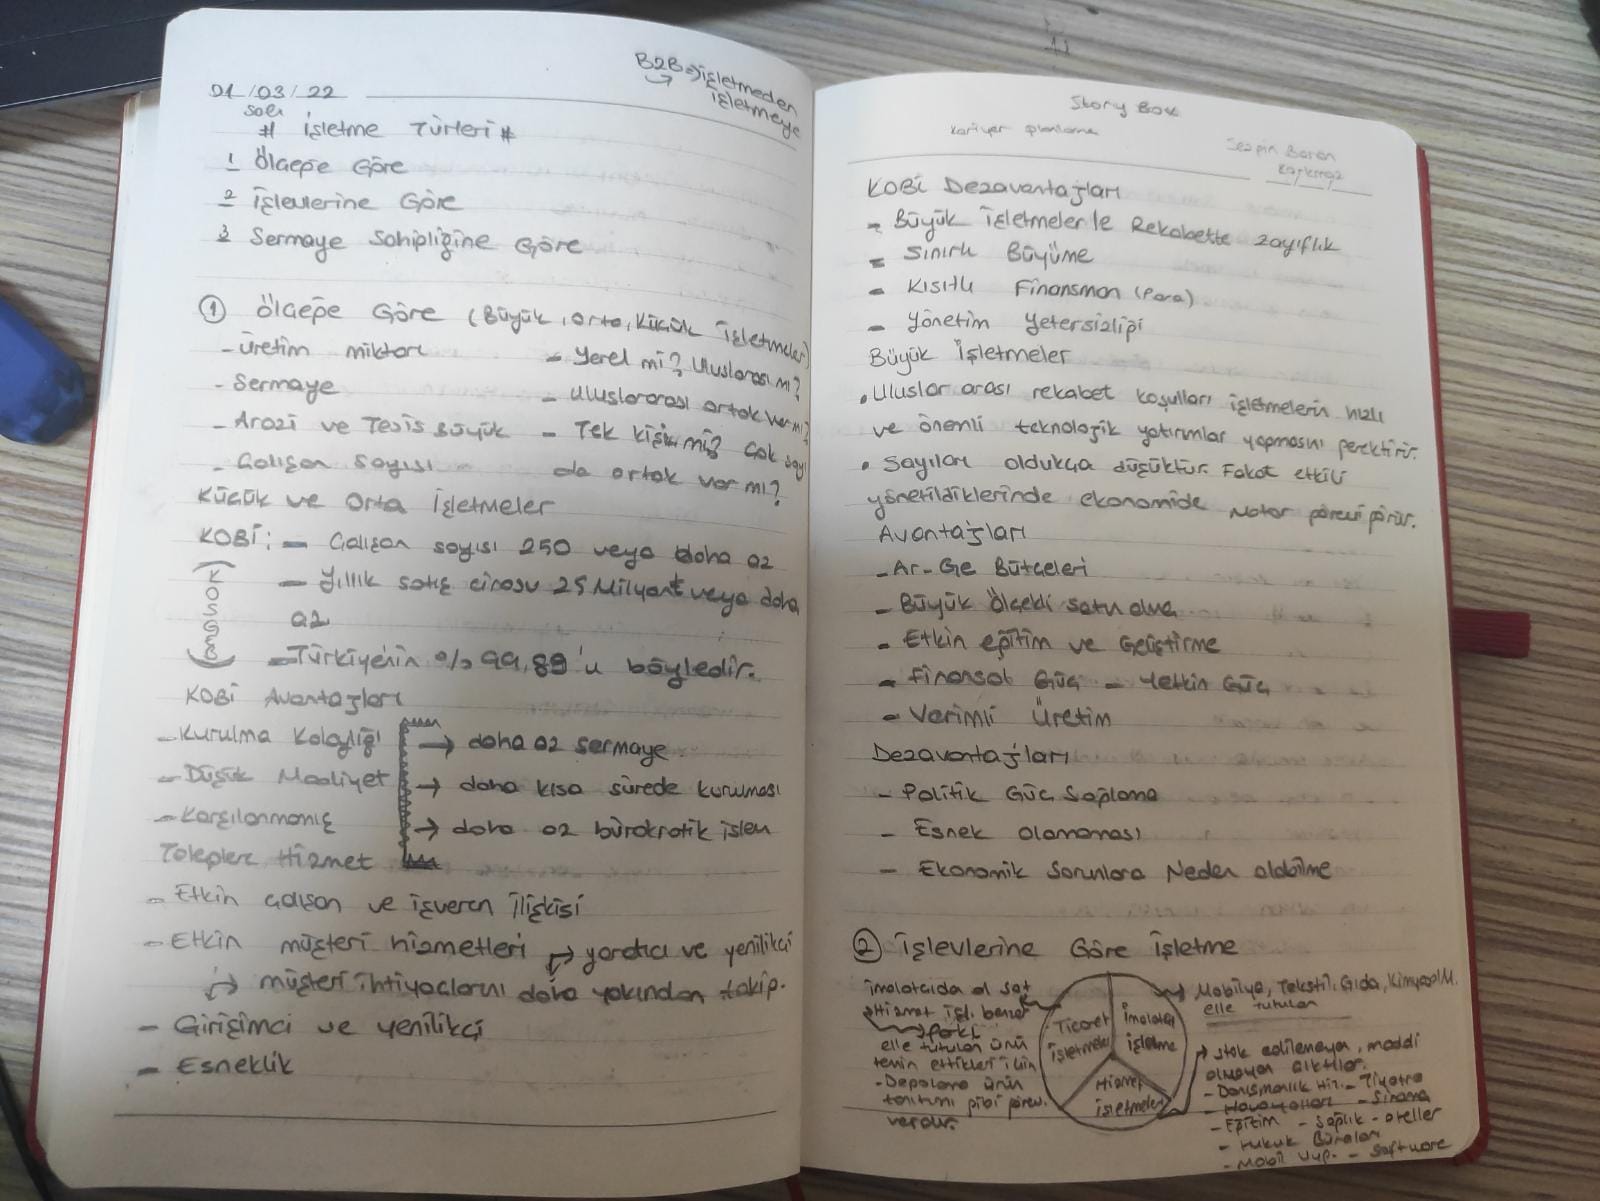 01/03/22
Salı
B2B => işletmeden
işletmeye
# İşletme Türleri #
1 Ölçeğe Göre
2 İşlevlerine Göre
3 Sermaye Sahipliğine Göre
① Ölçeğe Göre (Büyük, Orta, Küçük İşletmeler)
- Üretim miktarı
- Sermaye
- Arazi ve Tesis Büyük
- Çalışan sayısı
- Yerel mi? Uluslarası mı?
- Uluslararası ortak var mı?
- Tek kişi mi? Çok sayı
da ortak var mı?
Küçük ve Orta İşletmeler
KOBİ: - Çalışan sayısı 250 veya daha az
(KOSGEB)
- Yıllık satış cirosu 25 Milyar₺ veya daha
az
- Türkiye'nin %99,89'u böyledir.
KOBİ Avantajları
- Kurulma Kolaylığı
- Düşük Maaliyet
- Karşılanmamış
Taleplere Hizmet
→ daha az sermaye
→ daha kısa sürede kurulması
→ daha az bürokratik işlem
- Etkin çalışan ve işveren ilişkisi
- Etkin müşteri hizmetleri → yaratıcı ve yenilikçi
→ müşteri ihtiyaçlarını daha yakından takip.
- Girişimci ve yenilikçi
- Esneklik
Story Box
Kariyer planlama
KOBİ Dezavantajları
- Büyük İşletmelerle Rekabette zayıflık
- Sınırlı Büyüme
- Kısıtlı Finansman (Para)
- Yönetim Yetersizliği
Büyük İşletmeler
• Uluslar arası rekabet koşulları işletmelerin hızlı
ve önemli teknolojik yatırımlar yapmasını gerektirir.
• Sayıları oldukça düşüktür. Fakat etkili
yönetildiklerinde ekonomide Motor görevi görür.
Avantajları
- Ar-Ge Bütçeleri
- Büyük Ölçekli satın alma
- Etkin eğitim ve Geliştirme
- Finansal Güç - Yetkin Güç
- Verimli Üretim
Dezavantajları
- Politik Güç Sağlama
- Esnek olamaması
- Ekonomik Sorunlara Neden olabilme
② İşlevlerine Göre İşletme
imalatçıda al sat
→ Hizmet işl. benzer
→ farkı
elle tutulan ürün
temin ettikleri için
- Depolama ürün
tanıtımı gibi görev.
vardır.
Ticaret
işletmeleri
İmalatçı
işletme
Hizmet
işletmeler
→ Mobilya, Tekstil, Gıda,
elle tutulan
→ stok edilemeyen, maddi
olmayan çıktılar.
- Danışmanlık Hiz. - Tiyatro
- Havayolları - Sinama
- Eğitim - Sağlık - oteller
- Hukuk Büroları
- Mobil Uyg. - Software